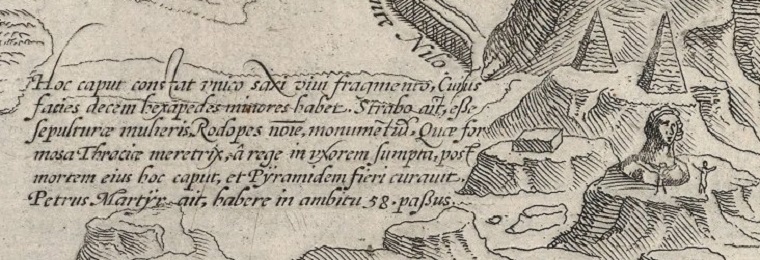 nte Nilo
Hoc caput constat vnico saxi viui fragmento, Cuius
facies decem hexapedes minores habet. Strabo ait, eße
sepulturæ mulieris, Rodopes no͞ie, monumētū, Quæ for
mosa Thraciæ meretrix, â rege in vxorem sumpta, post
mortem eius hoc caput, et Pÿramidem fieri curauit.
Petrus Martÿr ait, habere in ambitu 58. paßus.